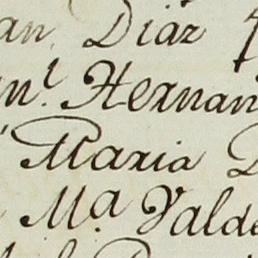 an Diaz
n.l Hernan
Maria D
M.a Valde